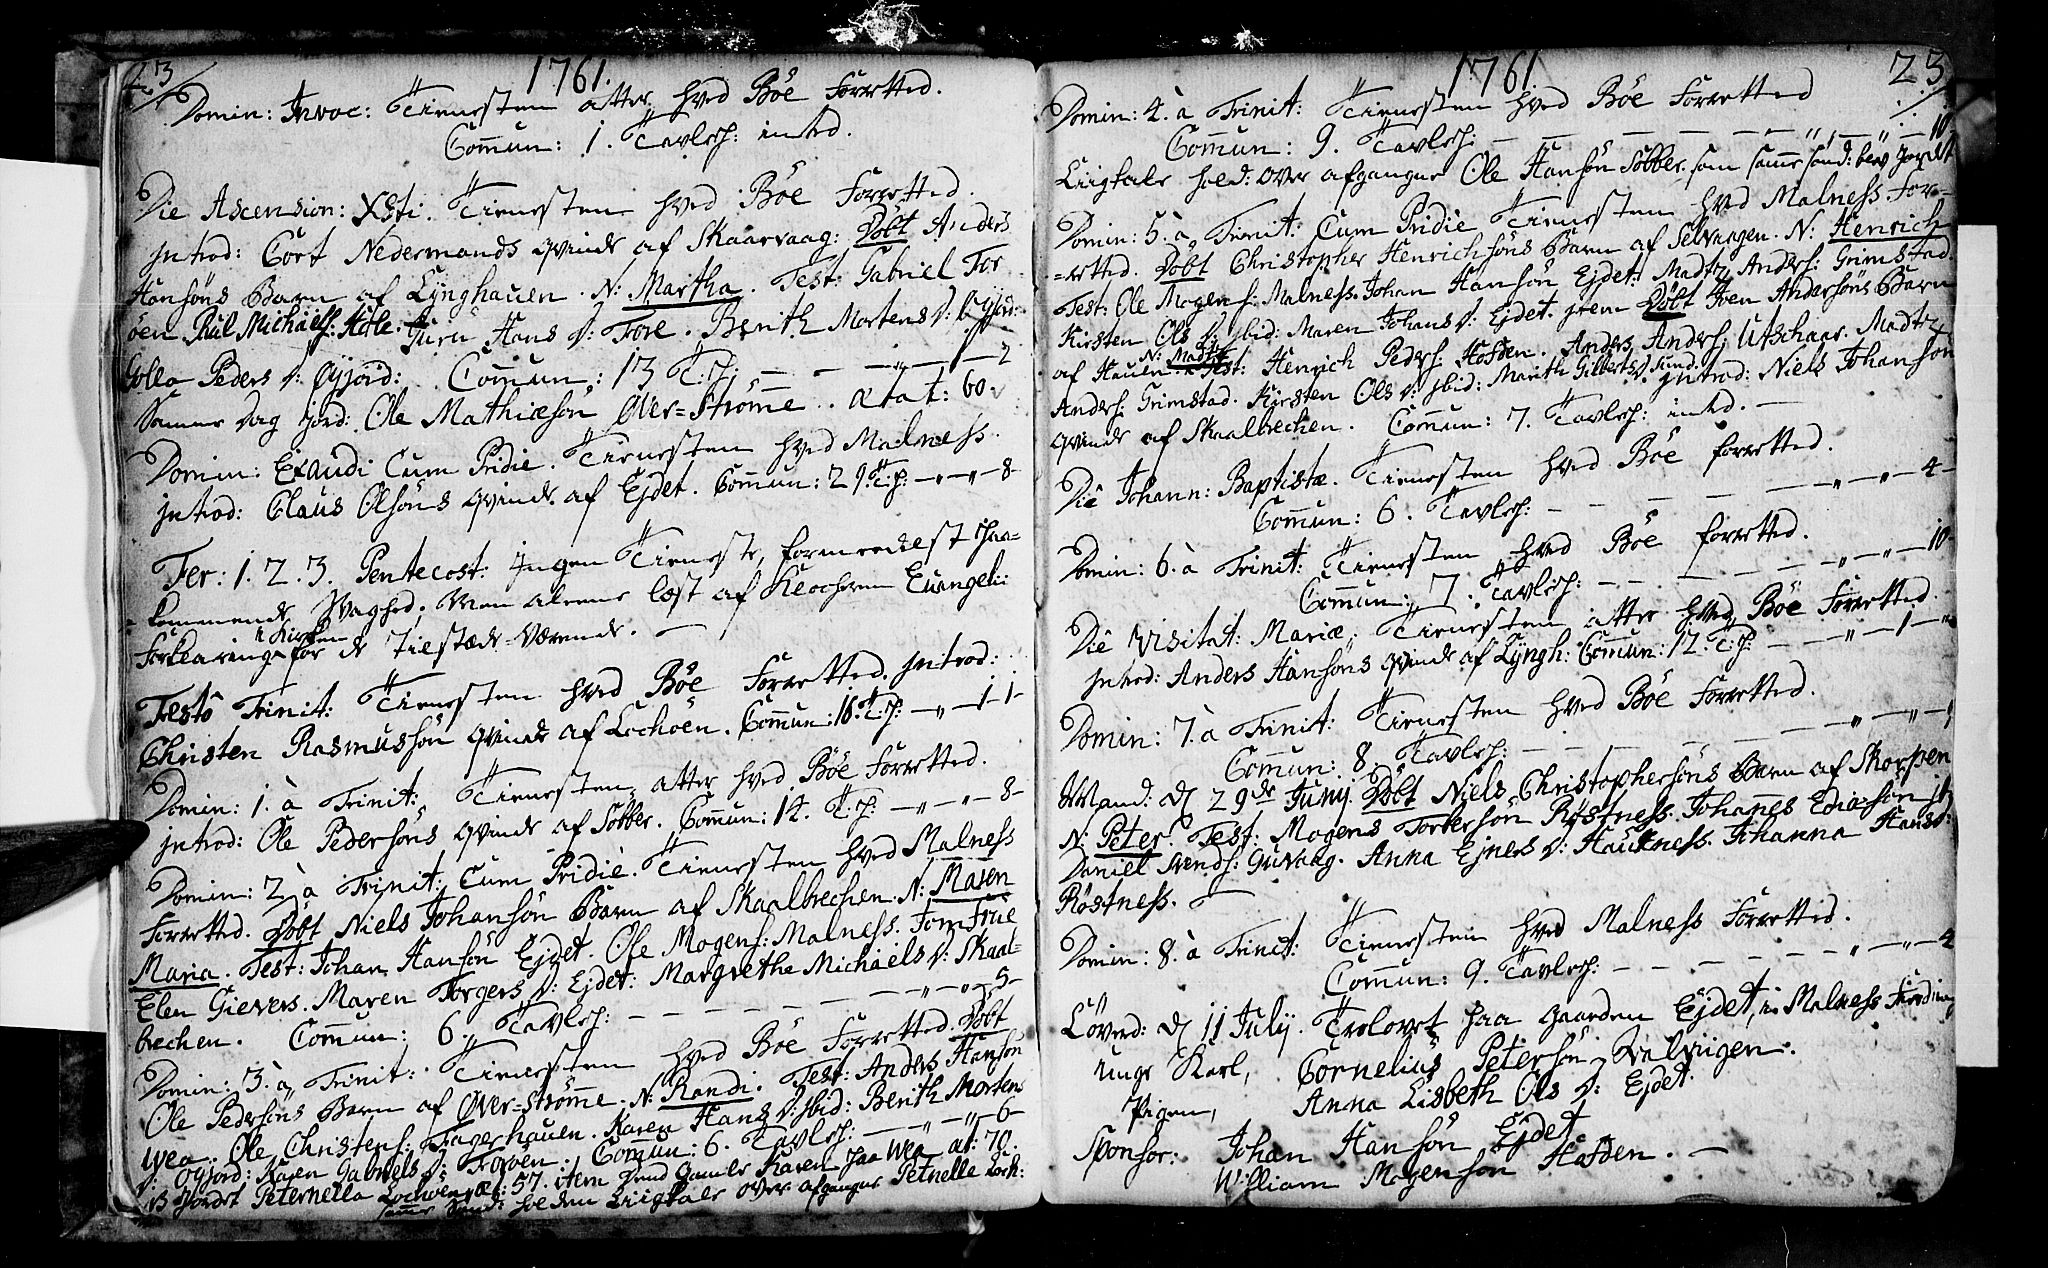 23
1761.
Domin: Invoc: Tienesten atter hved Böe Forretted.
Com̄un: 1. Tavlep: inted.
Die Ascension: Xsti. Tienesten hved Böe Forretted.
jntrod: Cort Nedermands qvinde af Skaarvaag: Döbt Anders
Hansöns Barn af Lynghauen. N: Martha. Test: Gabriel For
öen Paul Michaels: Hole. Jurn Hans D: Fore. Berith Mortens D: Öyjord:
Golla Peders D: Öyjord: Com̄un: 13 T:p: — — „ — 1 — 2
Samme dag jord: Ole Mathiæsön Over=Ström̄e. ætat: 60.
Domin: Exaudi Cum Pridie. Tienesten hved Malness.
jntrod: Claus Olsöns qvinde af Ejdet. Com̄un: 29. T:p: — „ — „ — 8 —
Fer: 1. 2. 3. Pentecost: Ingen Tieneste, formedelst paa=
=kommende Svaghed, men alene læst af Klocheren Euangelii
Forklaring i Kirken for de Tilstæde=værende. —
Festo Trinit: Tienesten hved Böe Forretted. jntrod:
Christen Rasmussön qvinde af Lochöen. Com̄un: 16. T:p: — „ — 1 — 1 —
Domin: 1. à Trinit: Tienesten atter hved Böe Forretted.
jntrod: Ole Pedersöns qvinde af Sobber. Com̄un: 14. T:p: — „ — „ — 8 —
Domin: 2. à Trinit: Cum Pridie. Tienesten hved Malness
Forretted. Döbt Niels Johansön Barn af Skaalbrechen. N: Maren
Maria. Test: Johan Hansön Ejdet. Ole Mogens: Malness. Jomfrue
Elen Gievers. Maren Torgers D: Ejdet: Margrethe Michaels D: Skaal=
brechen. Com̄un: 6. Tavlep: — — — — — „ — „ — 5 —
Domin: 3. à Trinit: Tienesten hved Böe Forretted. Döbt
Ole Pedersöns Barn af Over=Ström̄e. N: Randi. Test: Anders Hansön
Wea. Ole Christens: Fagerhauen. Karen Hans D: jbid: Berith Mortens
D: Öyjord: Karen Gabriels D: Foröen. Com̄un: 6. Tavlep: — „ — „ — 6 —
Jordet Peternella Lochöen æt: 57. item Karen paa Wea æt: 70.
sam̄e Sönd: holden Liigtale over afgangne Petnelle Loch:
1761
23
Domin: 4. à Trinit: Tienesten hved Böe Forretted
Com̄un: 9. Tavlep: — — — — — „ — „ — 10
Liigtale hold: over afgangne Ole Hansön Sobber. som sam̄e sönd: blev jordet
Domin: 5. à Trinit: Cum Pridie Tienesten hved Malness For=
=retted. Döbt Christopher Henrichsöns Barn af Selvaagen. N: Henrich
Test: Ole Mogens: Malness. Johan Hansön Ejdet: Madtz Anders: Grimstad
Kirsten Ols D: jbid: Maren Johans D: Ejdet. jtem Döbt Iven Andersöns Barn
af Hauen N: Madtz Test: Henrich Peders: Hofden. Anders Anders: Utschaar. Madtz
Anders: Grimstad. Kirsten Ols D: jbid: Marith Gilberts D: Sund. jntrod: Niels Johansön
qvinde af Skaalbrechen. Com̄un: 7. Tavlep: inted. —
Die Johann: Baptistæ. Tienesten hved Böe forretted.
Com̄un: 6. Tavlep: — — — — „ — „ — 4 —
Domin: 6. à Trinit: Tienesten hved Böe forretted.
Com̄un: 7. Tavlep: — — — — „ — „ — 10
Die Visitat: Mariæ, Tienesten atter hved Böe Forretted.
jntrod: Anders Hansöns qvinde af Lyngh: Com̄un: 12. T:p: — — „ — 1 — „
Domin: 7. à Trinit: Tienesten hved Böe Forretted.
Com̄un: 8. Tavlep: — — — — „ — „ —
Mand: d 29de Junij. Döbt Niels Christophersöns Barn af Skorpen
N: Peter. Test: Mogens Torbersön Röstness. Johan̄es Ediasön
Daniel Svends: Guvaag. Anna Ejners D: Hauckness. Johanna Hans D:
Röstness. —
Domin: 8. à Trinit: Tienesten hved Malness Forretted.
Com̄un: 9. Tavlep: — — — — — „ — „ — 4
Löverd: d 11 July. Trolovet paa gaarden Ejdet, i Malness Fierding
unge Karl, Cornelius Petersön
Pigen, Anna Lisbeth Ols D: Ejdet.
Sponsor: Johan Hansön Ejdet
William Mogensön Hofden. —